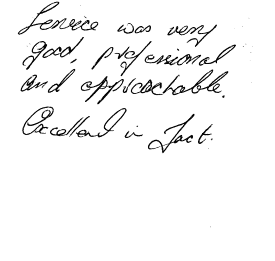 Service was very
good, professional
and approachable.
Excellent in fact.